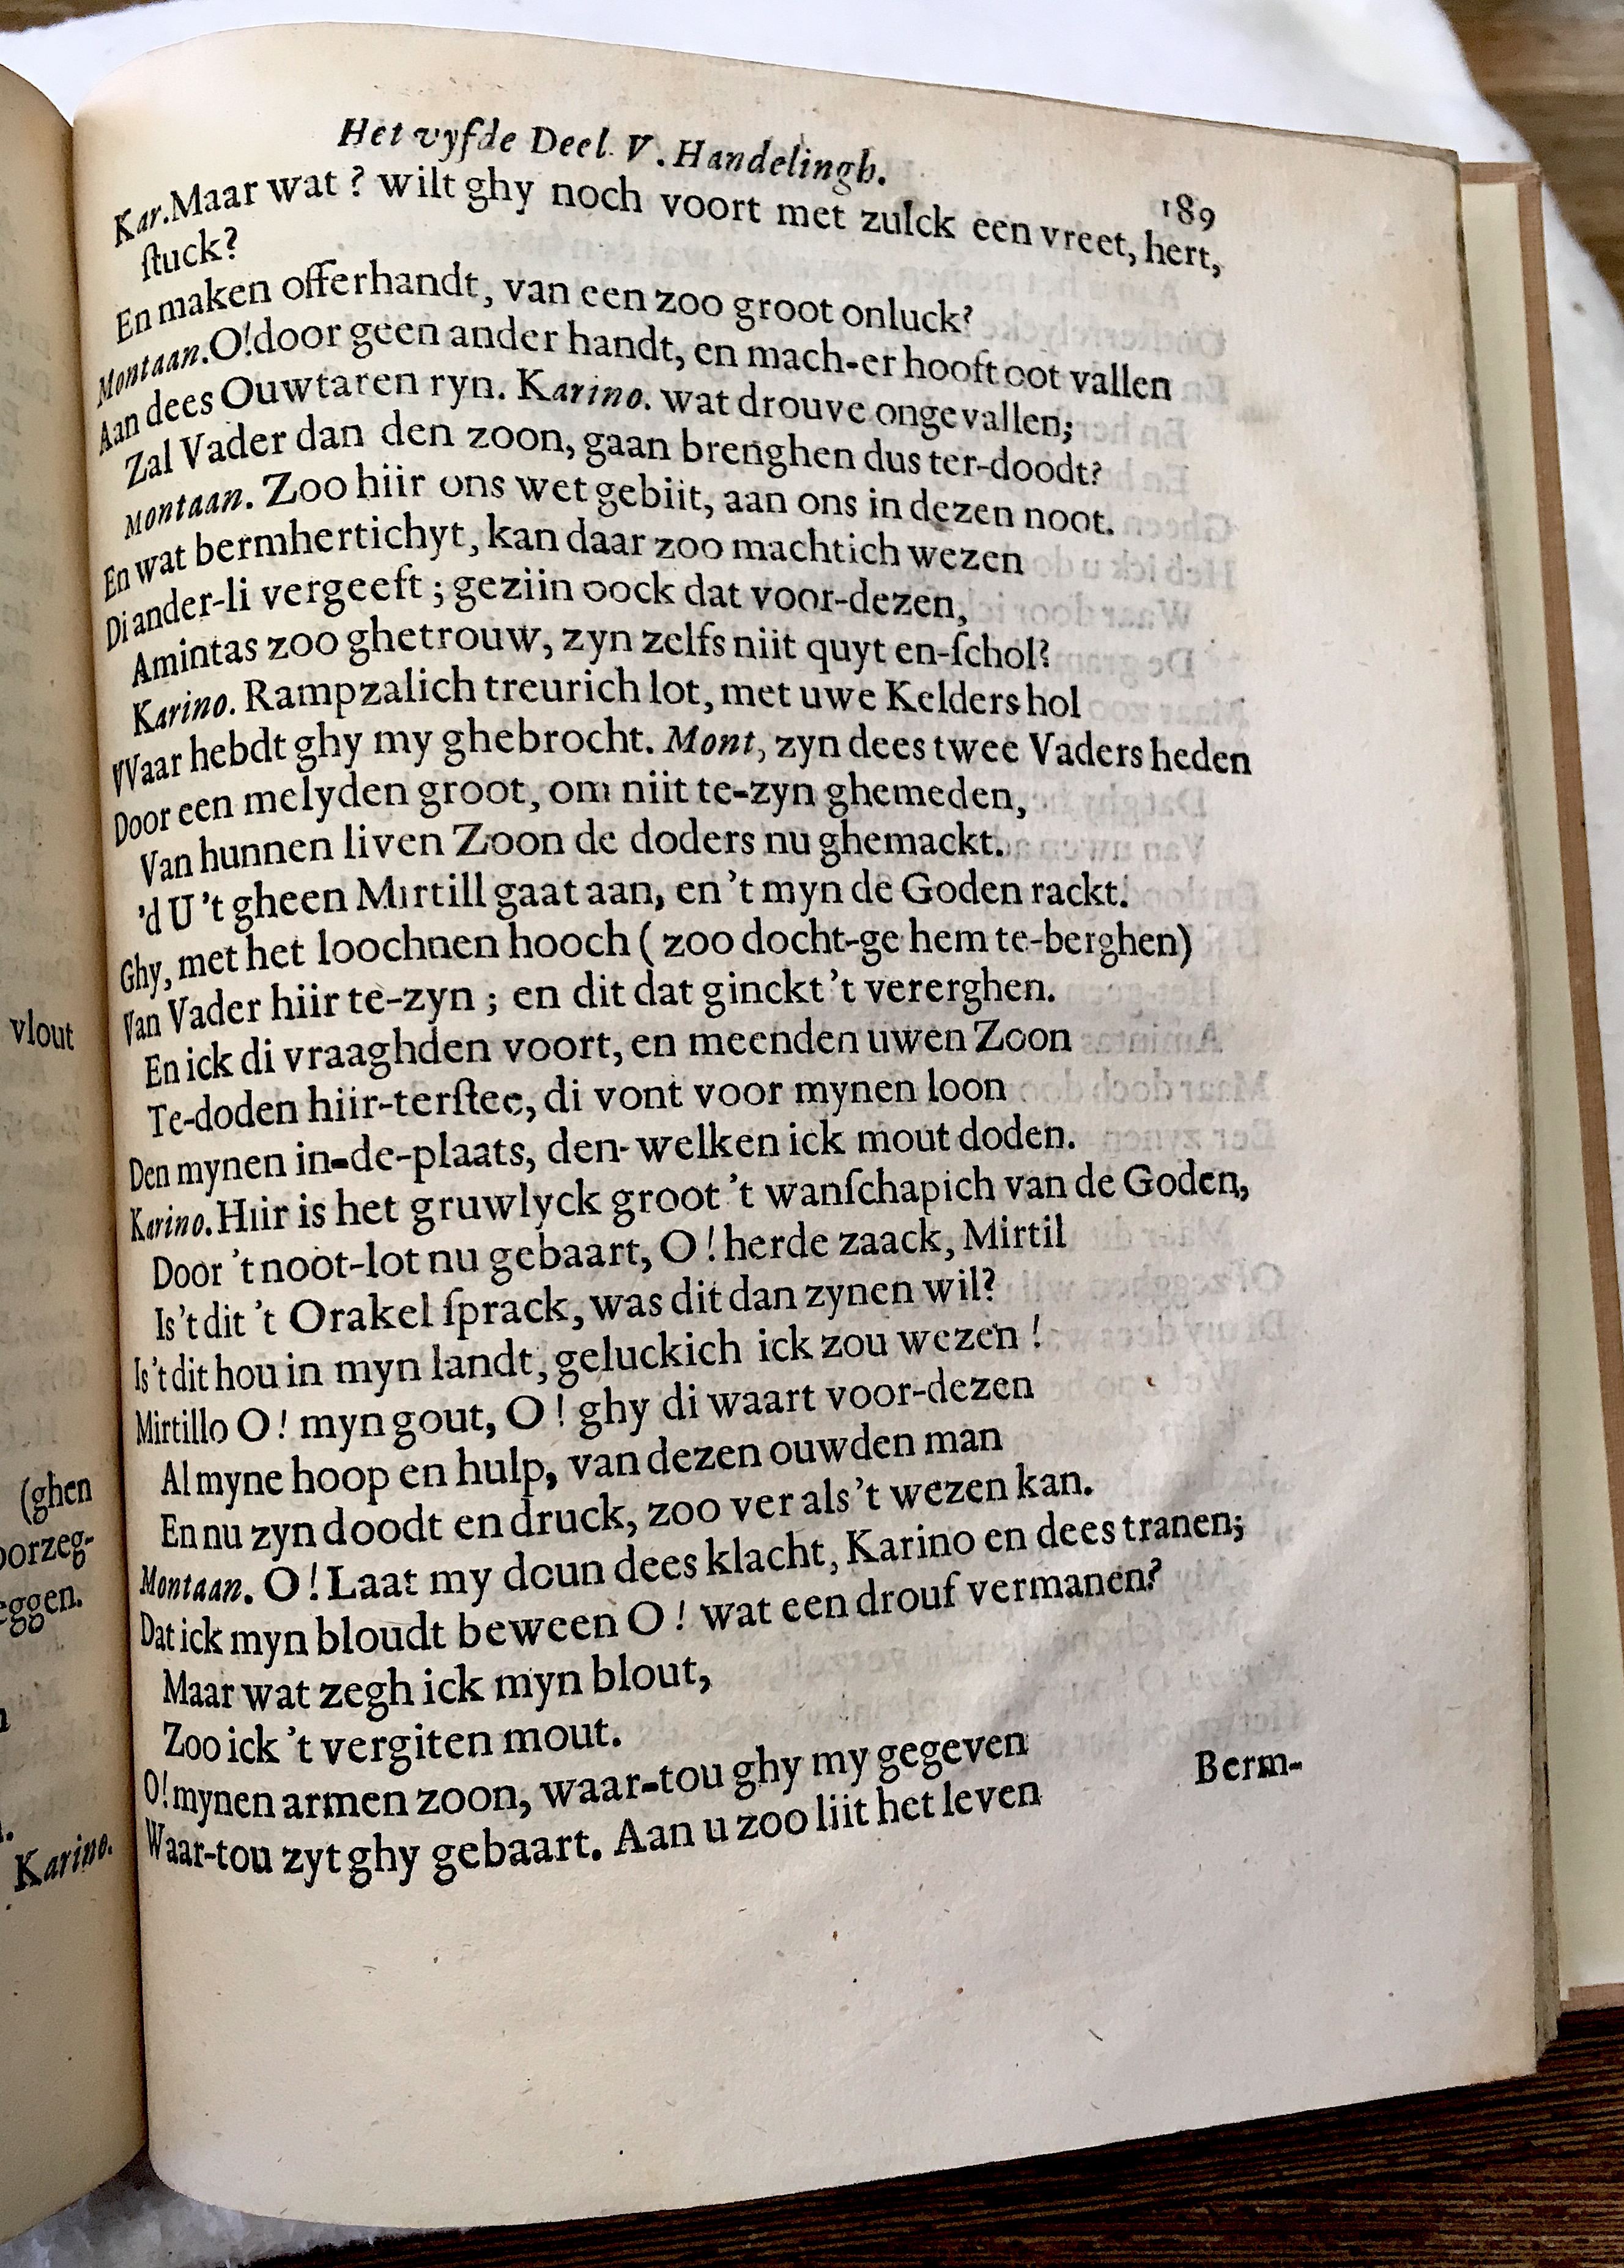 vlout
(ghen
oorzeg-
eggen.
Karino.
Het vyfde Deel. V. Handelingh.
189
Kar. Maar wat ? wilt ghy noch voort met zulck een vreet, hert,
ſtuck?
En maken offerhandt, van een zoo groot onluck?
Montaan. O! door geen ander handt, en mach-er hooft oot vallen
Aan dees Ouwtaren ryn. Karino. wat drouve ongevallen;
Zal Vader dan den zoon, gaan brenghen dus ter-doodt?
Montaan. Zoo hiir ons wet gebiit, aan ons in dezen noot.
En wat bermhertichyt, kan daar zoo machtich wezen
Di ander-li vergeeft ; geziin oock dat voor-dezen,
Amintas zoo ghetrouw, zyn zelfs niit quyt en-ſchol?
Karino. Rampzalich treurich lot, met uwe Kelders hol
Waar hebdt ghy my ghebrocht. Mont, zyn dees twee Vaders heden
Door een melyden groot, om niit te-zyn ghemeden,
Van hunnen liven Zoon de doders nu ghemackt.
'd U 't gheen Mirtill gaat aan, en 't myn de Goden rackt.
Ghy, met het loochnen hooch ( zoo docht-ge hem te-berghen)
Van Vader hiir te-zyn ; en dit dat ginckt 't vererghen.
En ick di vraaghden voort, en meenden uwen Zoon
Te-doden hiir-terſtee, di vont voor mynen loon
Den mynen in-de-plaats, den-welken ick mout doden.
Karino. Hiir is het gruwlyck groot 't wanſchapich van de Goden,
Door 't noot-lot nu gebaart, O ! herde zaack, Mirtil
Is 't dit 't Orakel ſprack, was dit dan zynen wil?
Is 't dit hou in myn landt, geluckich ick zou wezen !
Mirtillo O ! myn gout, O ! ghy di waart voor-dezen
Al myne hoop en hulp, van dezen ouwden man
En nu zyn doodt en druck, zoo ver als 't wezen kan.
Montaan. O ! Laat my doun dees klacht, Karino en dees tranen;
Dat ick myn bloudt beween O ! wat een drouf vermanen?
Maar wat zegh ick myn blout,
Zoo ick 't vergiten mout.
O! mynen armen zoon, waar-tou ghy my gegeven
Waar-tou zyt ghy gebaart. Aan u zoo liit het leven
Berm-